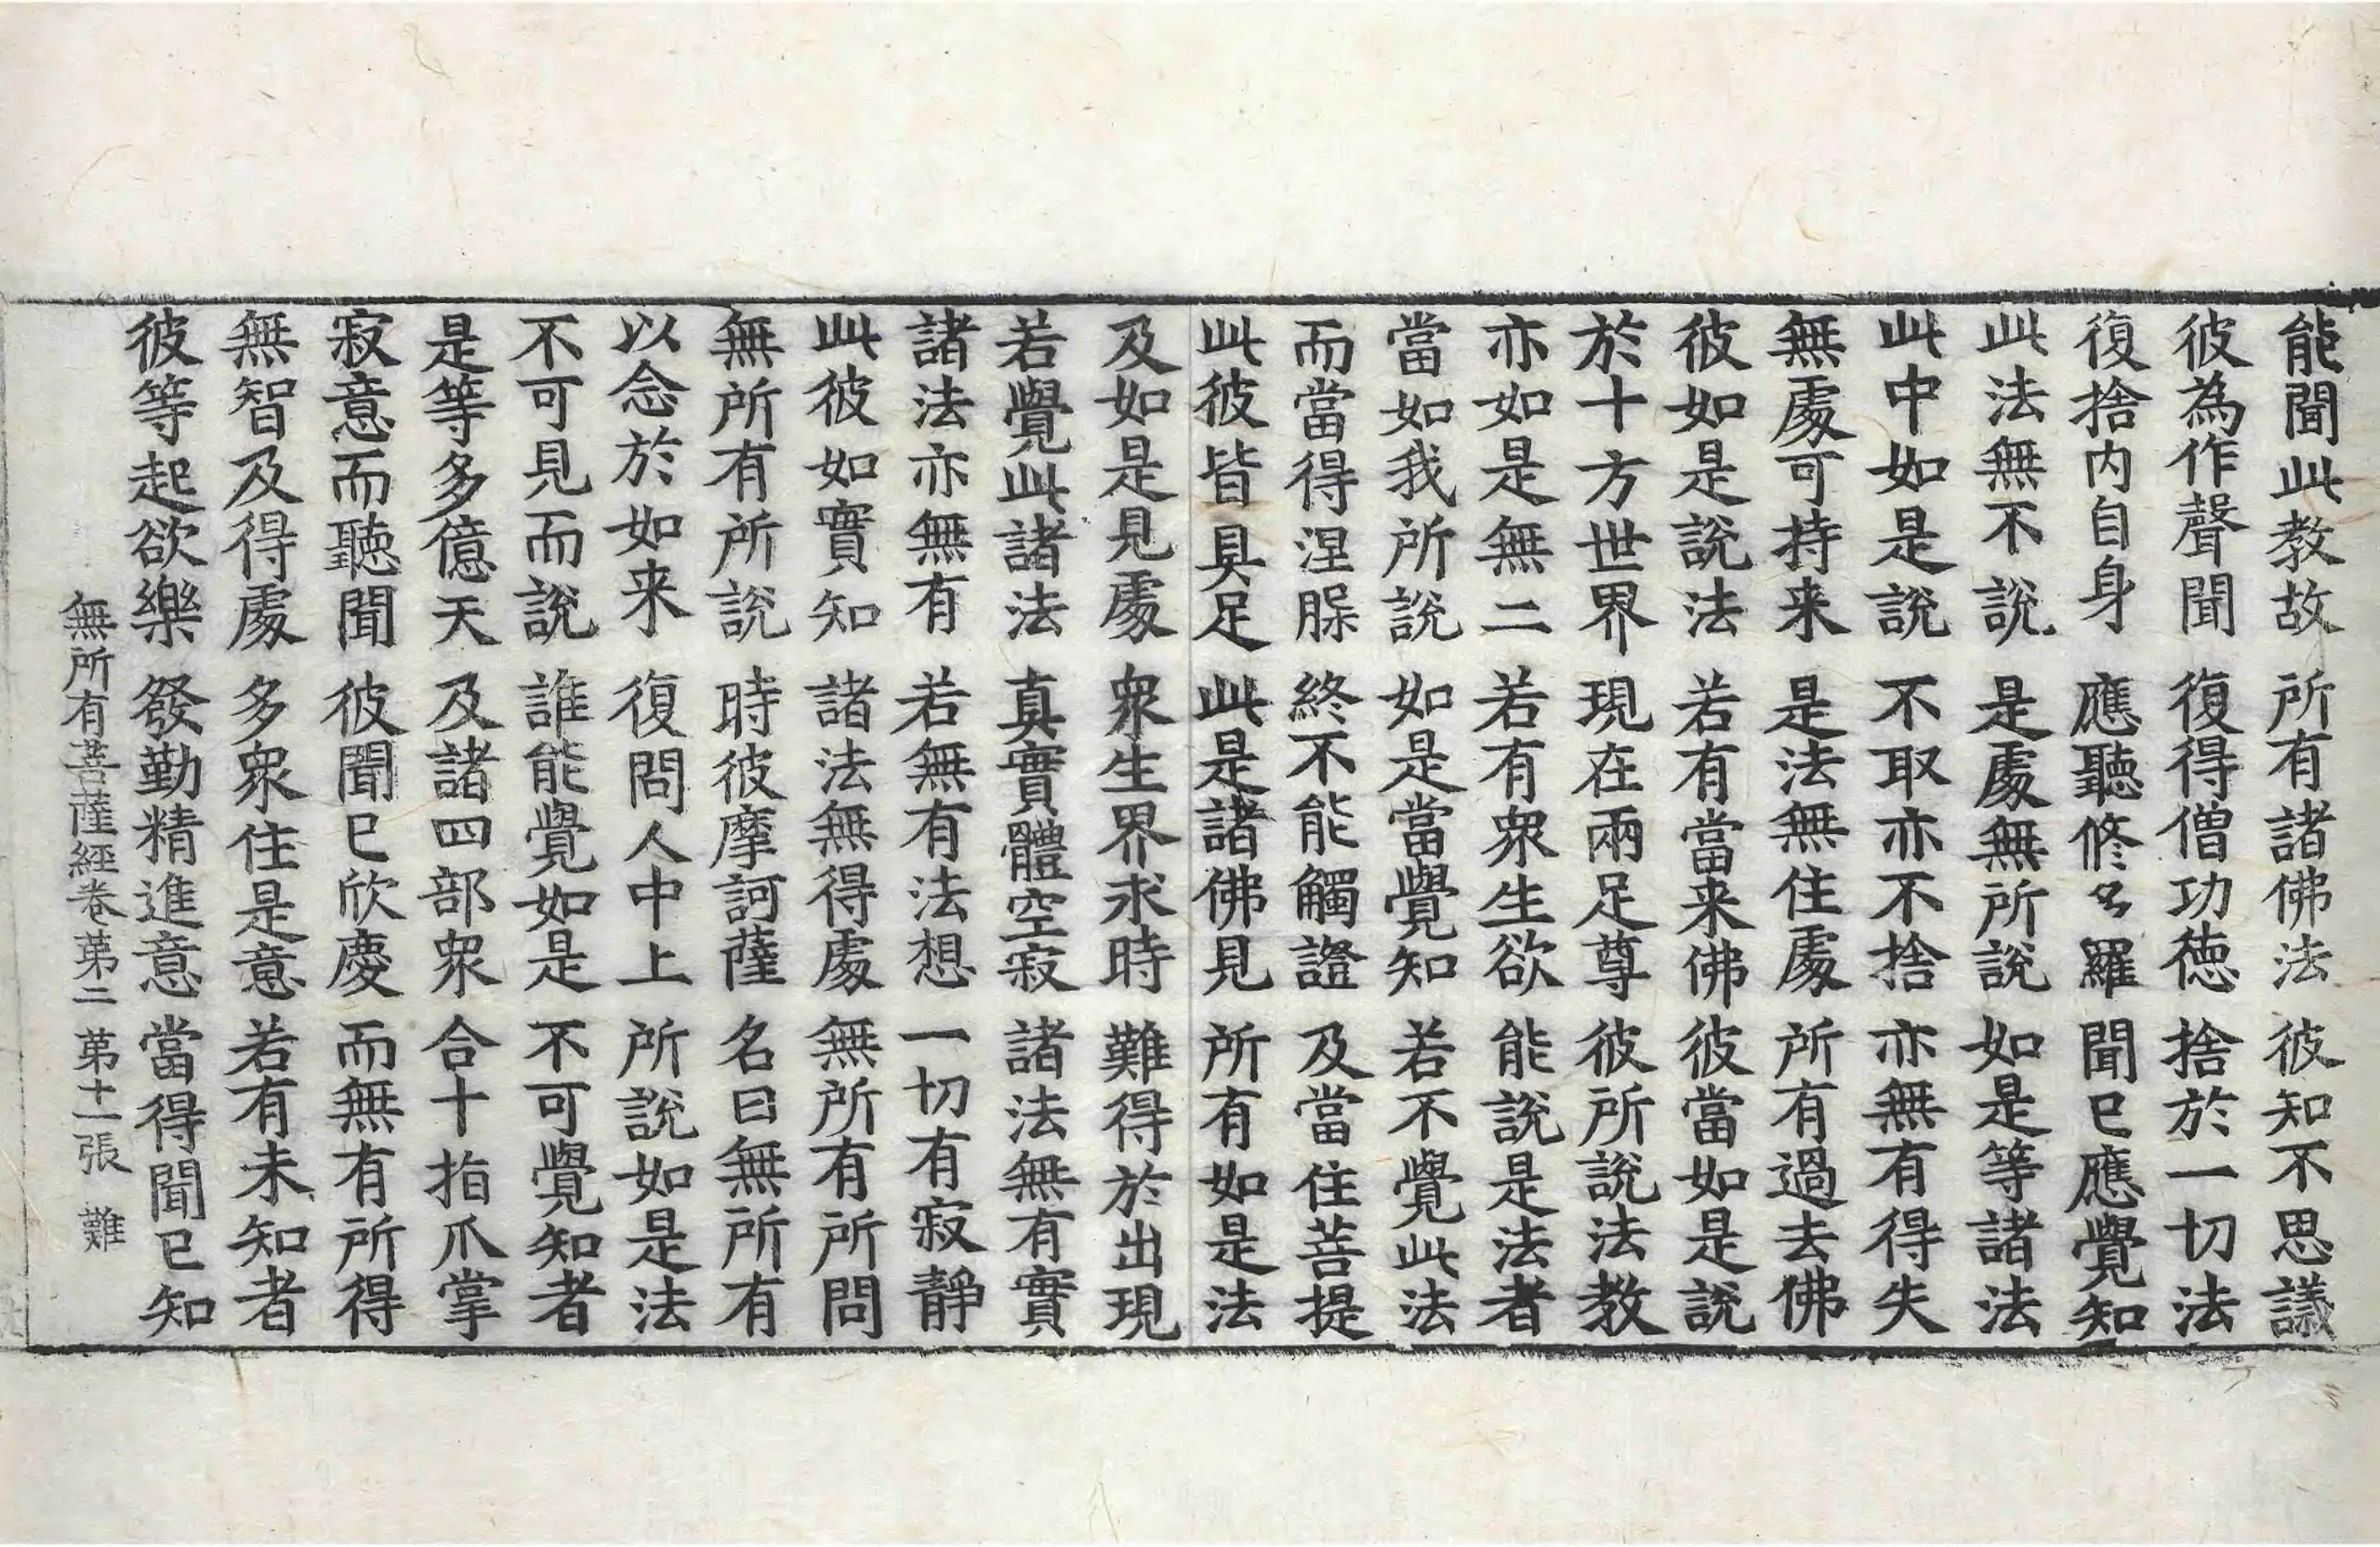 能聞此教故 所有諸佛法 彼知不思議
彼為作聲聞 復得僧功徳 捨於一切法
復捨内自身 應聽修多羅 聞已應覺知
此法無不說 是處無所說 如是等諸法
此中如是說 不取亦不捨 亦無有得失
無處可持来 是法無住處 所有過去佛
彼如是說法 若有當来佛 彼當如是說
於十方世界 現在兩足尊 彼所說法教
亦如是無二 若有衆生欲 能說是法者
當如我所說 如是當覺知 若不覺此法
而當得涅槃 終不能觸證 及當住菩提
此彼皆具足 此是諸佛見 所有如是法
及如是見處 衆生界求時 難得於出現
若覺此諸法 真實體空寂 諸法無有實
諸法亦無有 若無有法想 一切有寂靜
此彼如實知 諸法無得處 無所有所問
無所有所說 時彼摩訶薩 名曰無所有
以念於如来 復問人中上 所說如是法
不可見而說 誰能覺如是 不可覺知者
是等多億天 及諸四部衆 合十指爪掌
寂意而聽聞 彼聞已欣慶 而無有所得
無智及得處 多衆住是意 若有未知者
彼等起欲樂 發勤精進意 當得聞已知
無所有菩薩經卷第二 第十一張 難